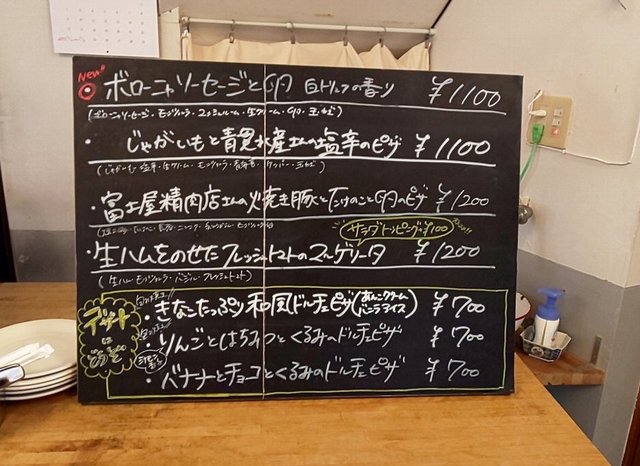 New!
ボローニャソーセージと卵 白トリュフの香り ¥1100
(ボローニャソーセージ・モッツァレラ・マッシュルーム・生クリーム・卵・玉ねぎ)
・じゃがいもと青貫水産さんの塩辛のピザ ¥1100
・富士屋精肉店さんの焼き豚とたけのこと卵のピザ ¥1200
サラダトッピング+¥100
・生ハムをのせたフレッシュトマトのマルゲリータ ¥1200
(生ハム・モッツァレラ・バジル・フレッシュトマト)
デザートにどうぞ
・きなこたっぷり和風ドルチェピザ(あんこクリームバニラアイス) ¥700
・りんごとはちみつとくるみのドルチェピザ ¥700
・バナナとチョコとくるみのドルチェピザ ¥700